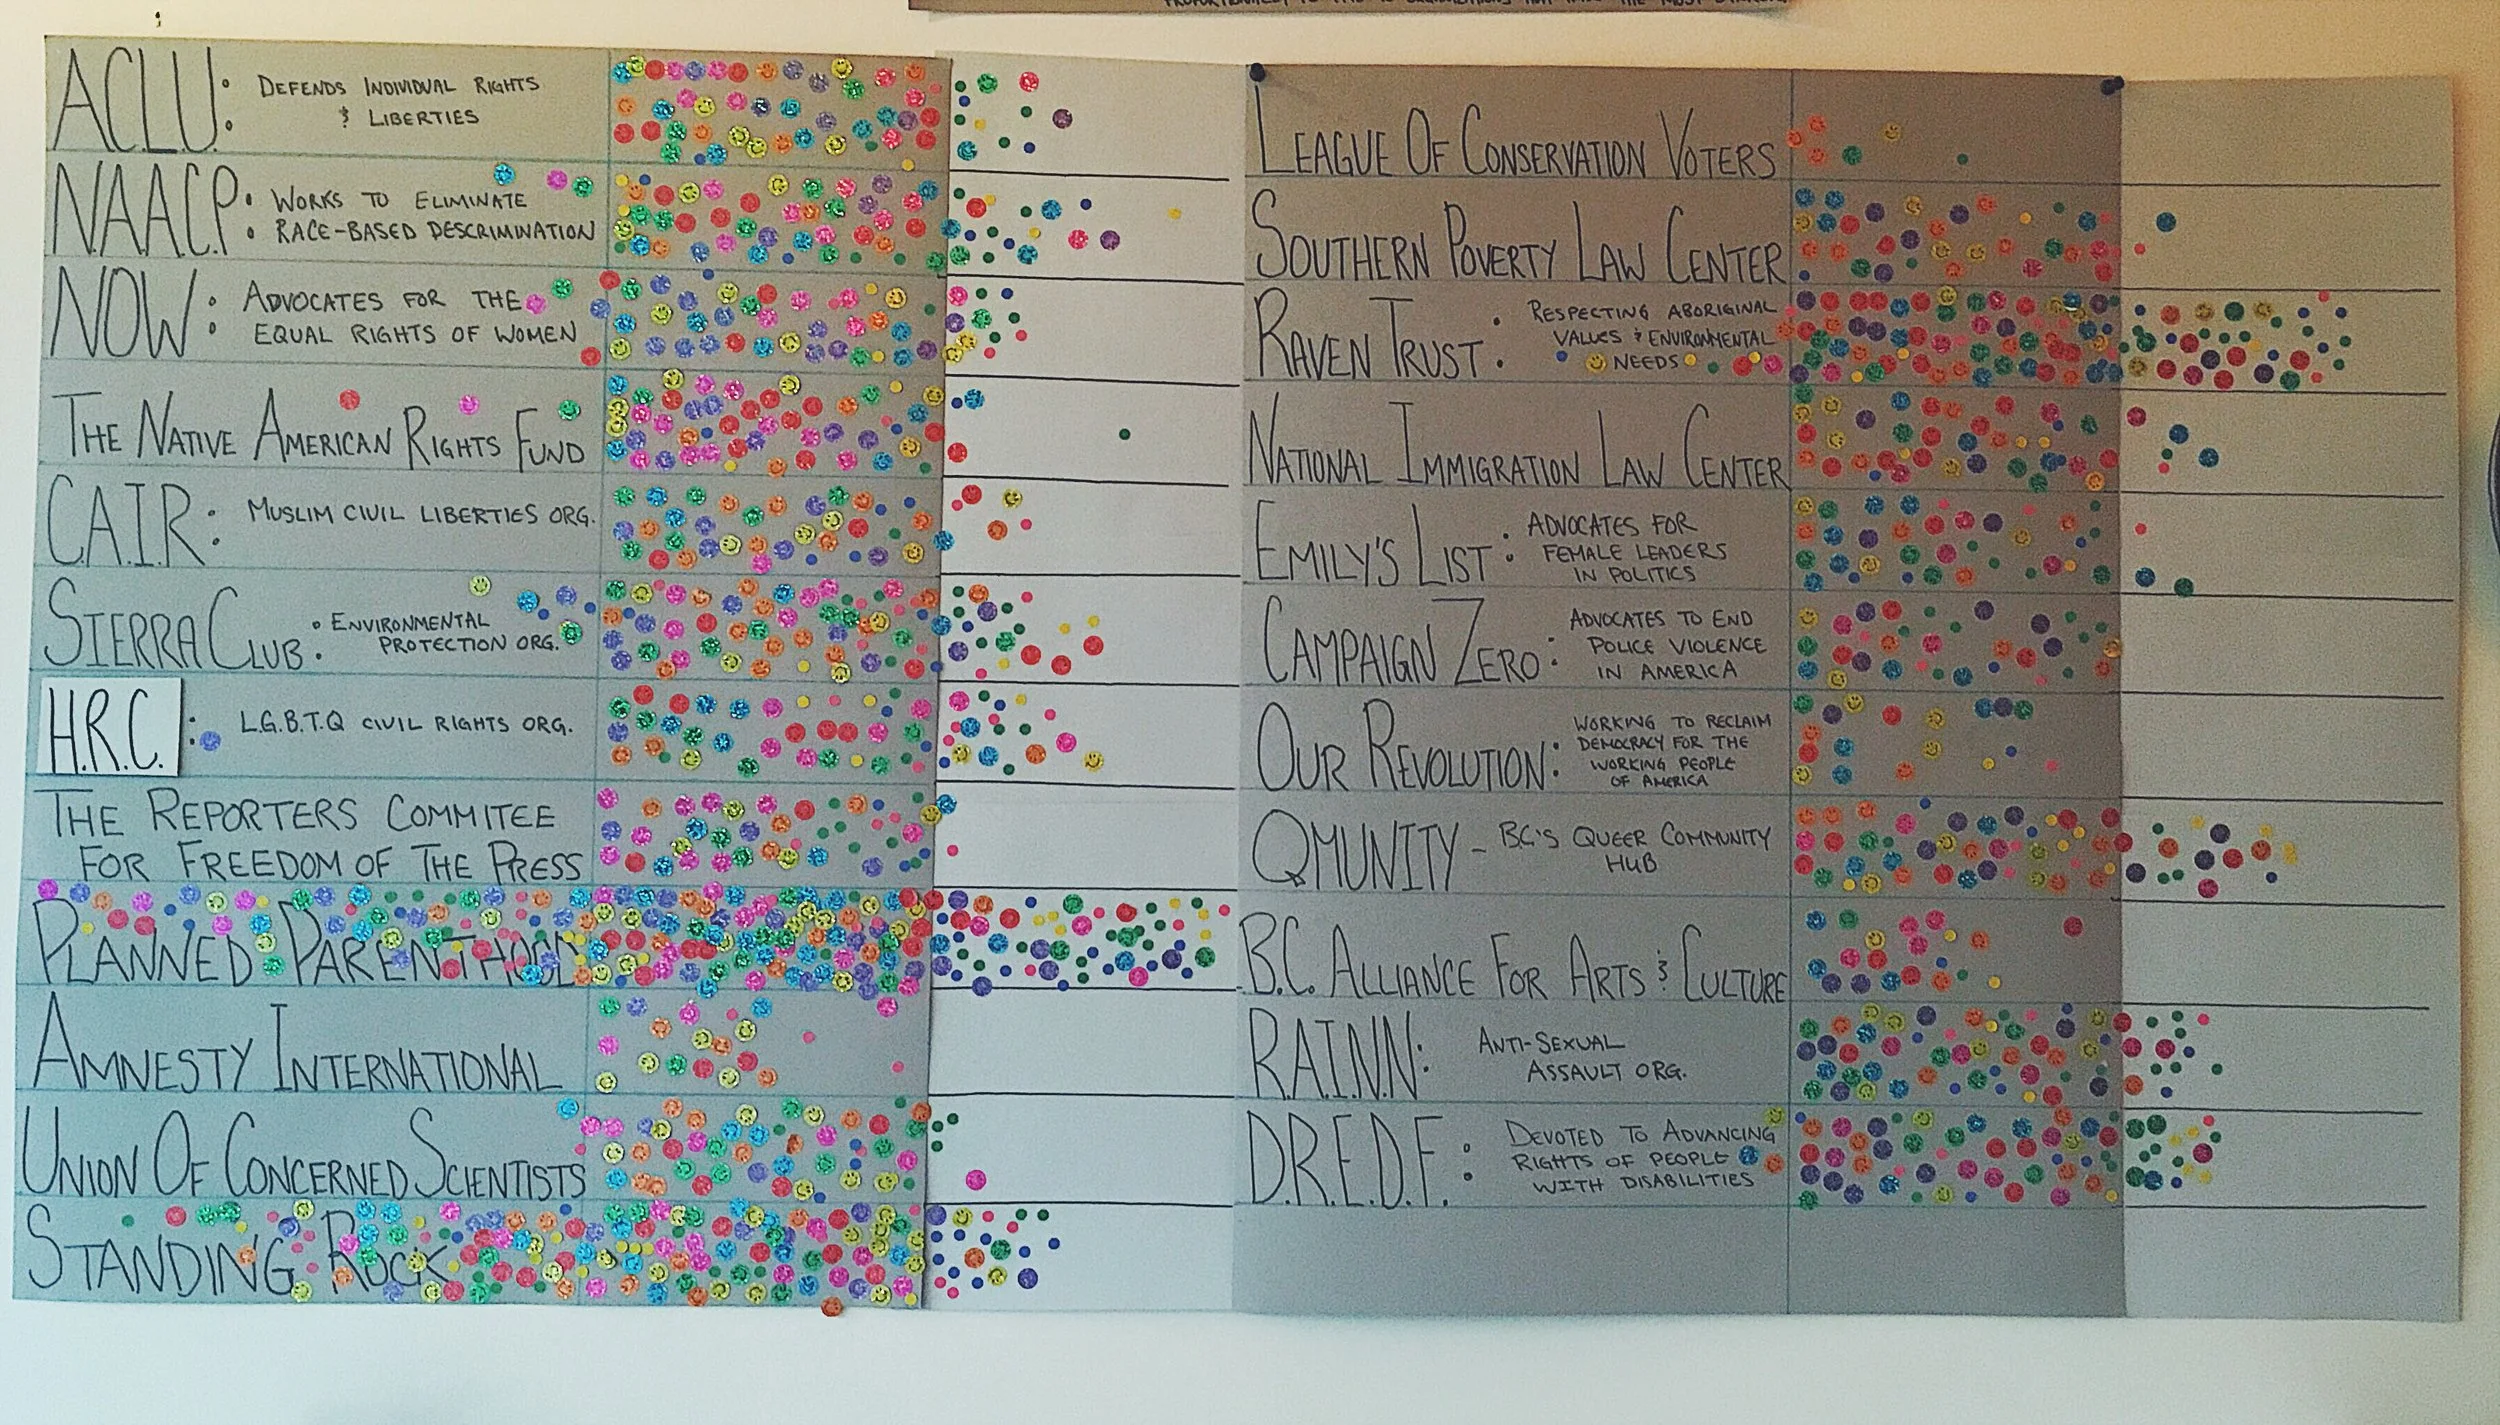 A.C.L.U.: DEFENDS INDIVIDUAL RIGHTS
& LIBERTIES
N.A.A.C.P.: WORKS TO ELIMINATE
RACE-BASED DESCRIMINATION
NOW: ADVOCATES FOR THE
EQUAL RIGHTS OF WOMEN
THE NATIVE AMERICAN RIGHTS FUND
C.A.I.R.: MUSLIM CIVIL LIBERTIES ORG.
SIERRA CLUB: ENVIRONMENTAL
PROTECTION ORG.
H.R.C.: L.G.B.T.Q CIVIL RIGHTS ORG.
THE REPORTERS COMMITEE
FOR FREEDOM OF THE PRESS
PLANNED PARENTHOOD
AMNESTY INTERNATIONAL
UNION OF CONCERNED SCIENTISTS
STANDING ROCK
LEAGUE OF CONSERVATION VOTERS
SOUTHERN POVERTY LAW CENTER
RAVEN TRUST: RESPECTING ABORIGINAL
VALUES & ENVIRONMENTAL
NEEDS
NATIONAL IMMIGRATION LAW CENTER
EMILY'S LIST: ADVOCATES FOR
FEMALE LEADERS
IN POLITICS
CAMPAIGN ZERO: ADVOCATES TO END
POLICE VIOLENCE
IN AMERICA
OUR REVOLUTION: WORKING TO RECLAIM
DEMOCRACY FOR THE
WORKING PEOPLE
OF AMERICA
QMUNITY - BC'S QUEER COMMUNITY
HUB
B.C. ALLIANCE FOR ARTS & CULTURE
R.A.I.N.N.: ANTI-SEXUAL
ASSAULT ORG.
D.R.E.D.F.: DEVOTED TO ADVANCING
RIGHTS OF PEOPLE
WITH DISABILITIES